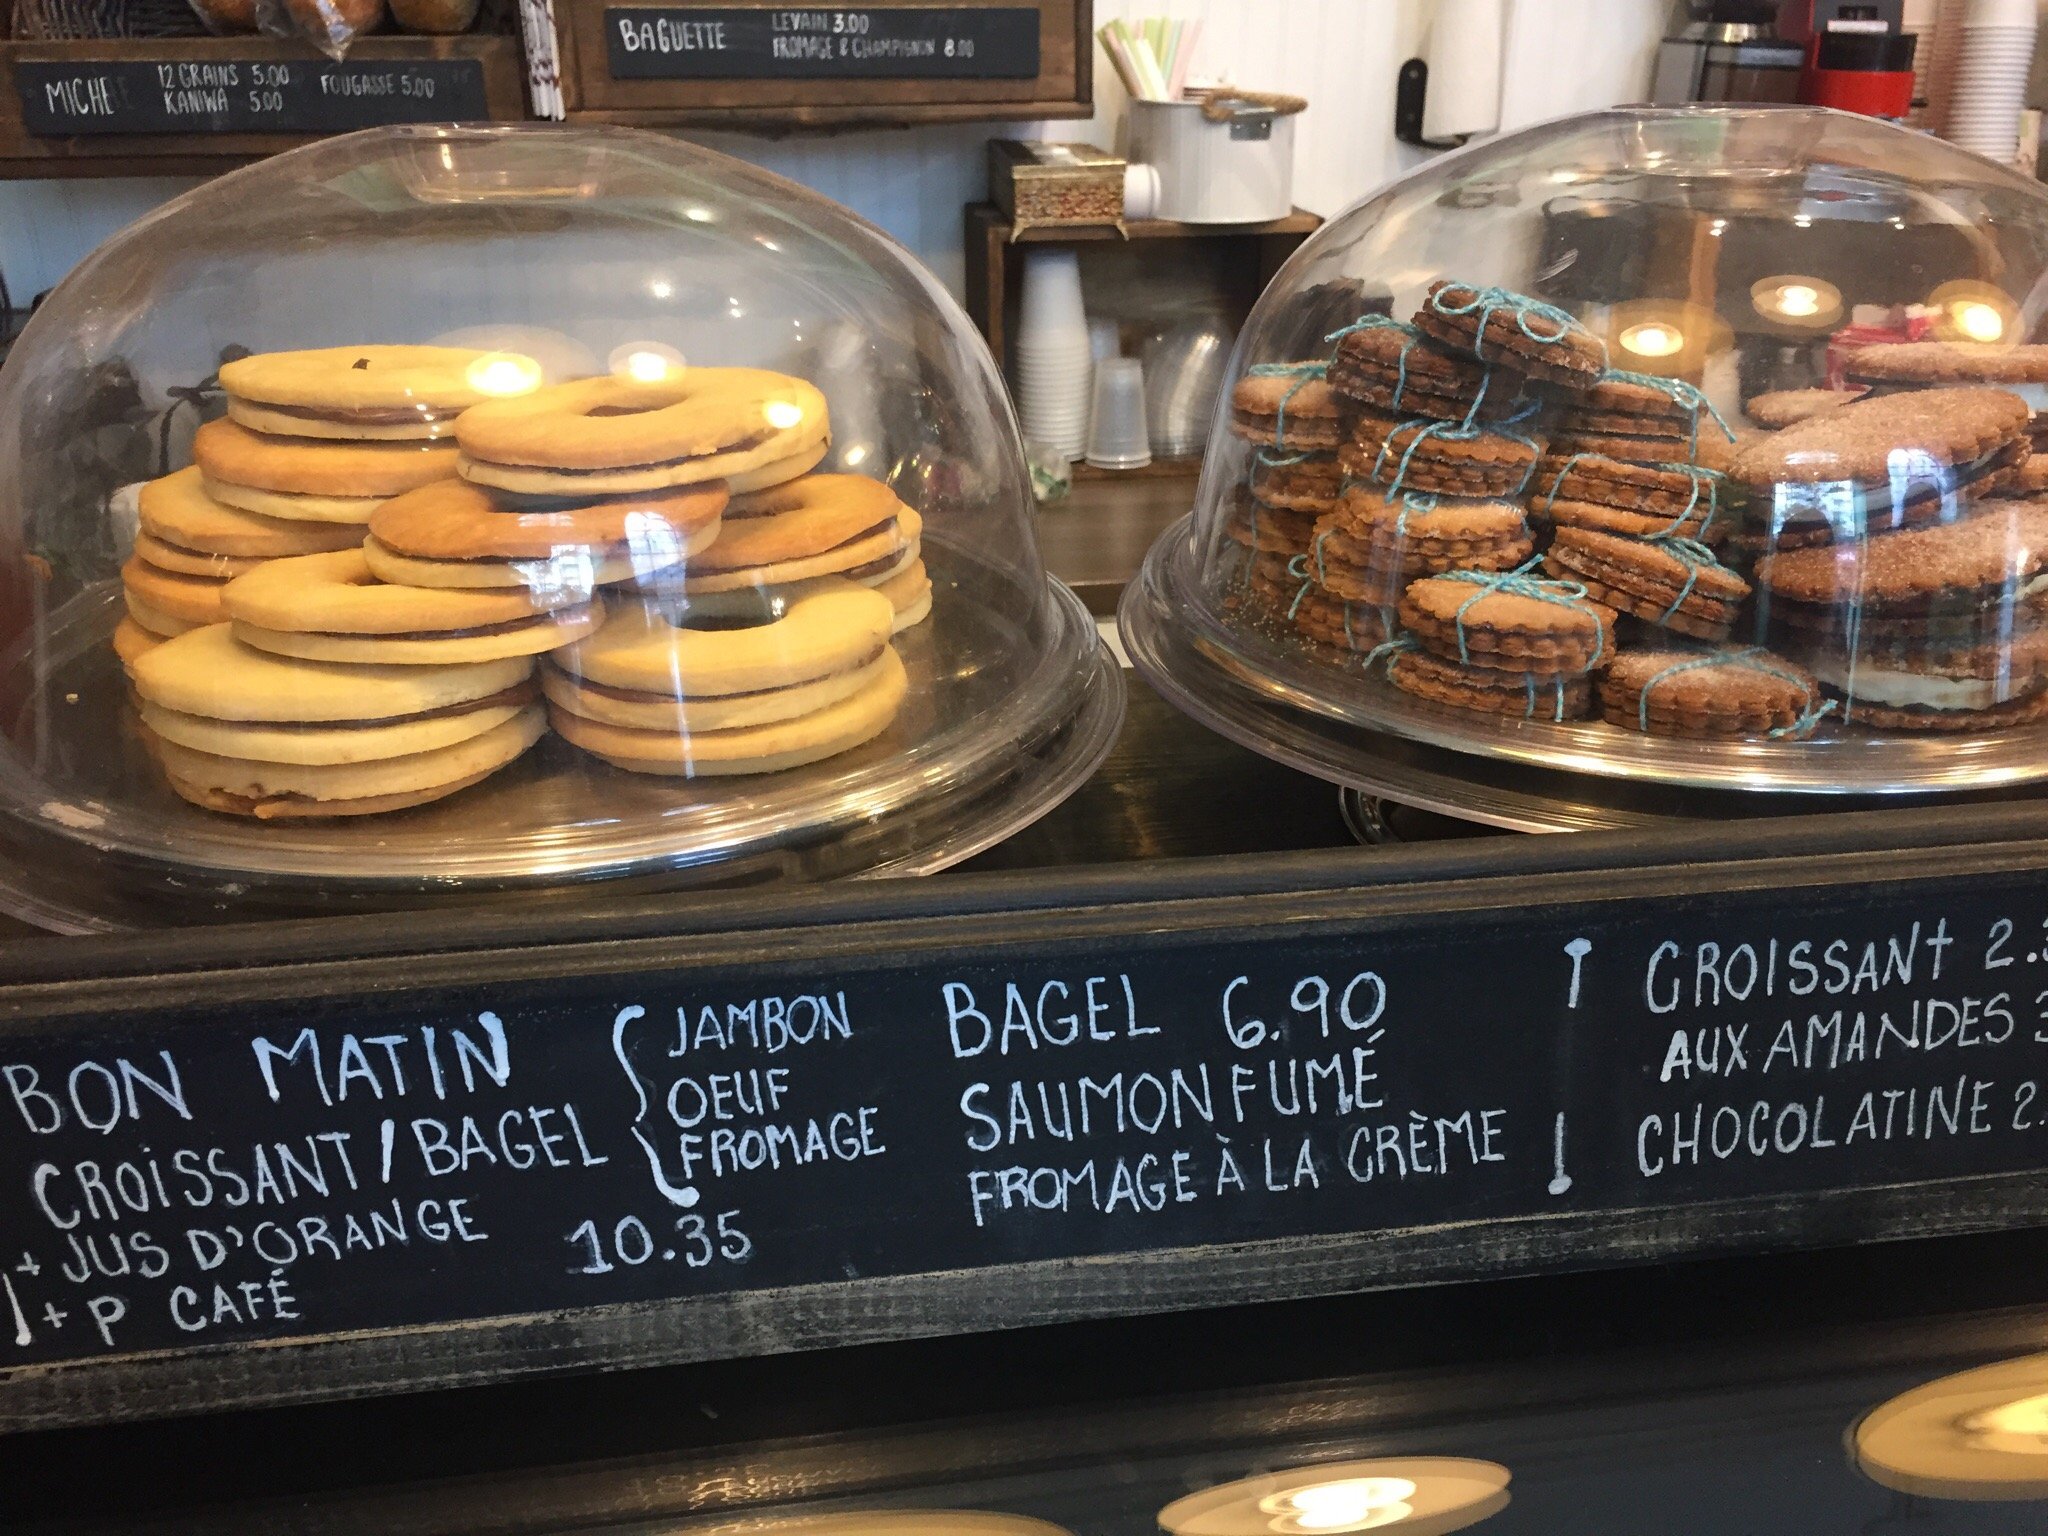 MICHE
12 GRAINS 5.00
KANIWA 5.00
FOUGASSE 5.00
BAGUETTE
LEVAIN 3.00
FROMAGE & CHAMPIGNON 8.00
BON MATIN
CROISSANT/BAGEL
+ JUS D'ORANGE
+ P CAFÉ
JAMBON
OEUF
FROMAGE
10.35
BAGEL 6.90
SAUMON FUMÉ
FROMAGE À LA CRÈME
CROISSANT 2.
AUX AMANDES 3
CHOCOLATINE 2.